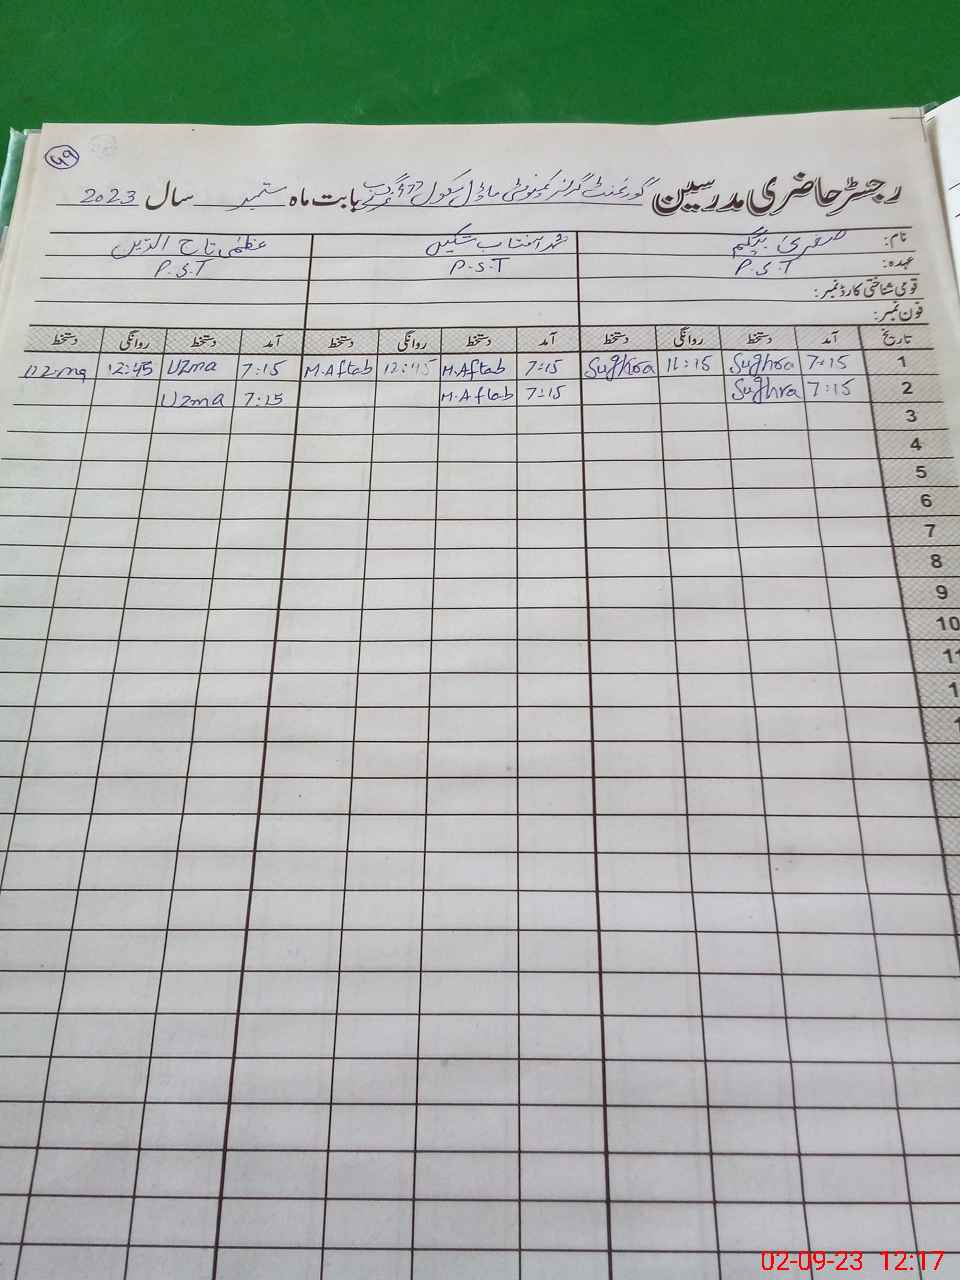 49
رجسٹر حاضری مدرسین گورنمنٹ گرلز کمیونٹی ماڈل سکول 477 گ ب بابت ماہ ستمبر سال 2023
نام: صغریٰ بیگم محمد آفتاب شکیل عظمیٰ تاج الدین
عہدہ: P.S.T P.S.T P.S.T
قومی شناختی کارڈ نمبر:
فون نمبر:
تاریخ آمد دستخط روانگی دستخط آمد دستخط روانگی دستخط آمد دستخط روانگی دستخط
1 7:15 Sughra 11:15 Sughra 7:15 M.Aftab 12:45 M.Aftab 7:15 Uzma 12:45 Uzma
2 7:15 Sughra 7:15 M.Aftab 7:15 Uzma
3
4
5
6
7
8
9
10
11
02-09-23 12:17